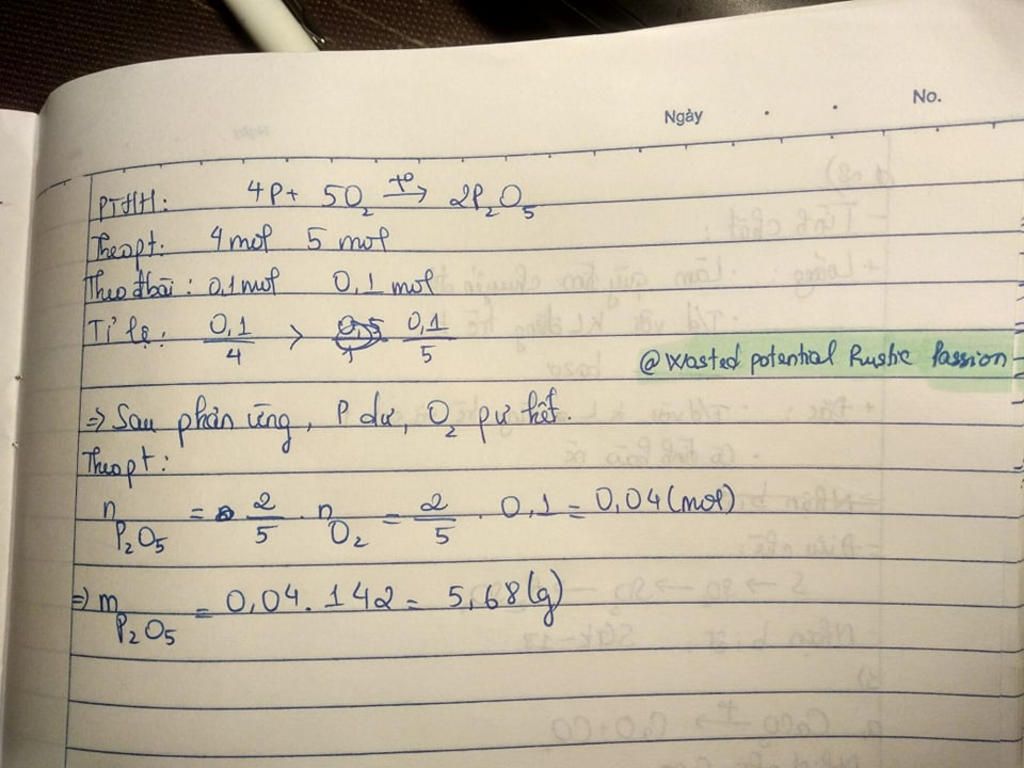 Ngày . . No.
PTHH: 4P + 5O₂ t⁰→ 2P₂O₅
Theo pt: 4 mol 5 mol
Theo đbài: 0,1 mol 0,1 mol
Tỉ lệ: 0,1/4 > 0,1/5
@ Wasted potential Rustic Passion
=> Sau phản ứng, P dư, O₂ pư hết.
Theo pt:
n P₂O₅ = 2/5 . n O₂ = 2/5 . 0,1 = 0,04 (mol)
=> m P₂O₅ = 0,04 . 142 = 5,68 (g)